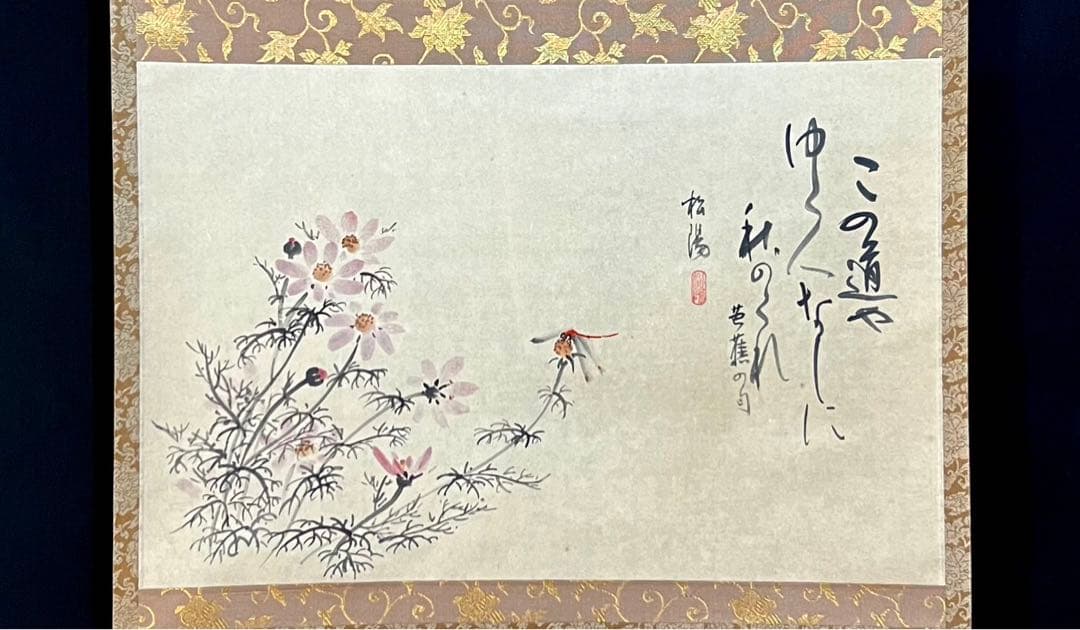 この道や
ゆく人なしに
秋のくれ
芭蕉の句
松陽